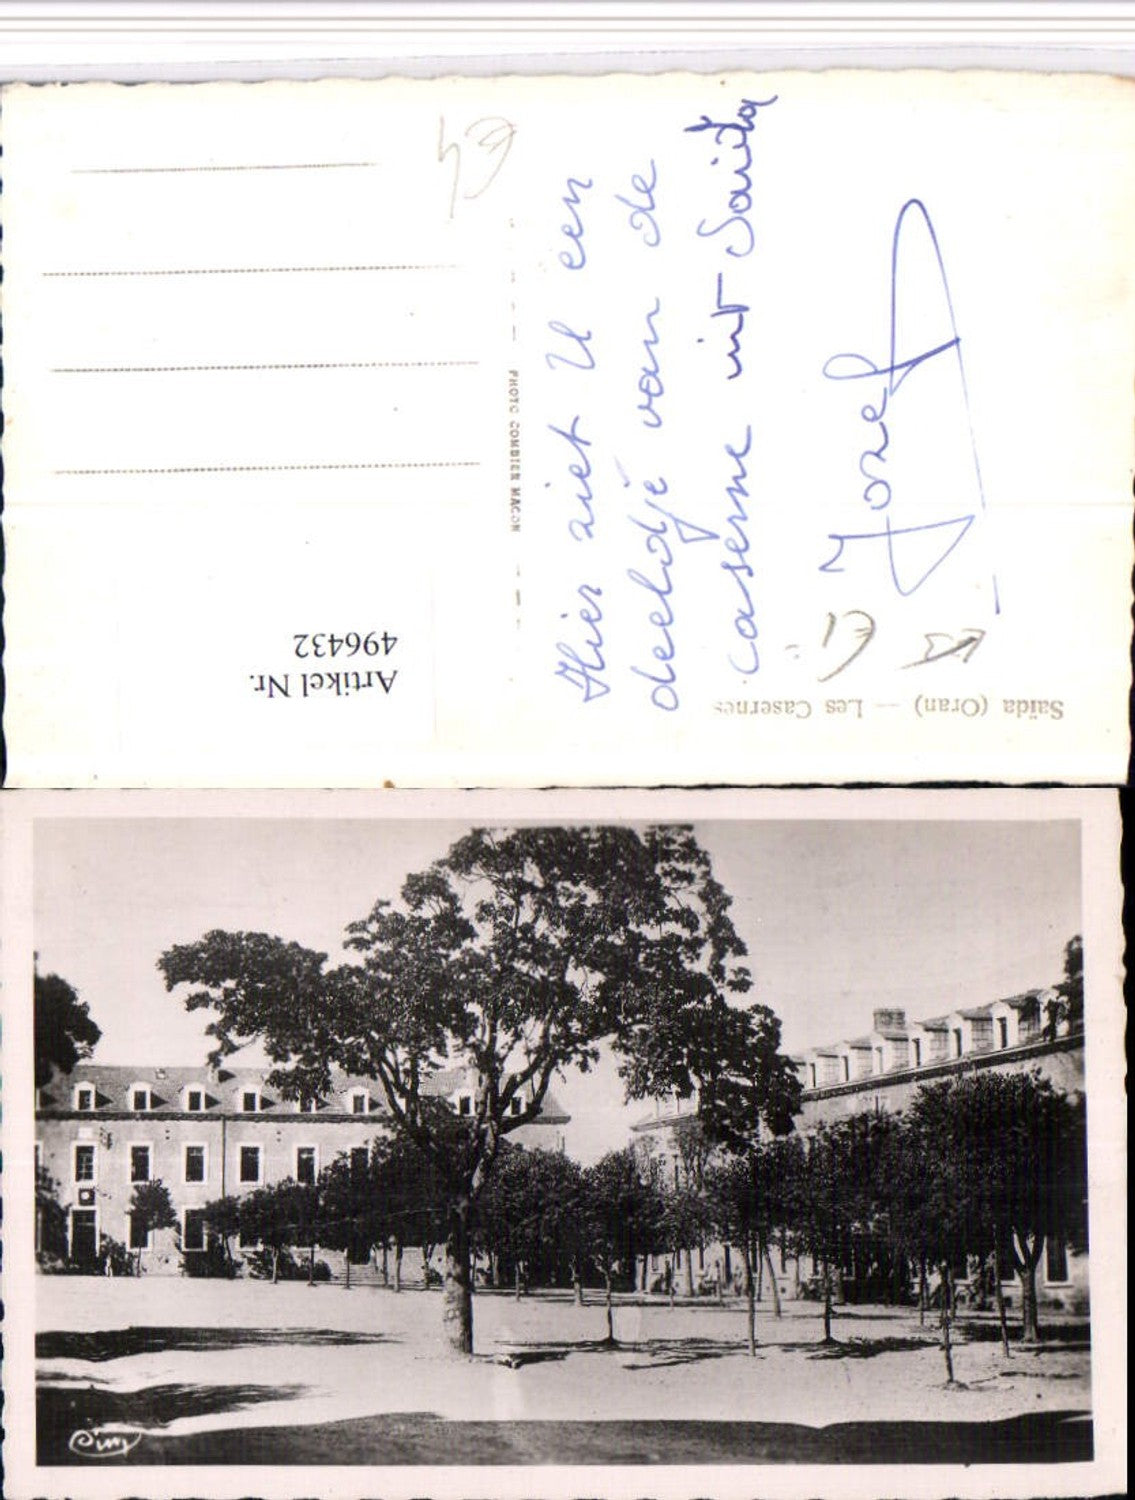 Hier ziet U een
deeltdje van de
caserne uit Saïda
Jozef
Saïda (Oran) — Les Casernes
PHOTO COMBIER MACON
Artikel Nr.
496432
Cim